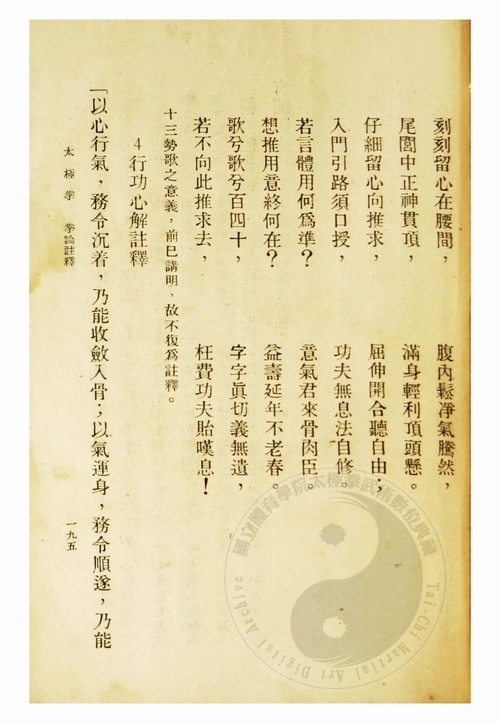 刻刻留心在腰間，腹內鬆淨氣騰然，
尾閭中正神貫頂，滿身輕利頂頭懸。
仔細留心向推求，屈伸開合聽自由；
入門引路須口授，功夫無息法自修。
若言體用何爲準？意氣君來骨肉臣。
想推用意終何在？益壽延年不老春。
歌兮歌兮百四十，字字眞切義無遺，
若不向此推求去，枉費功夫貽嘆息！
十三勢歌之意義，前巳講明，故不復爲註釋。
4 行功心解註釋
「以心行氣，務令沉着，乃能收斂入骨；以氣運身，務令順遂，乃能
太極拳　拳論註釋　一九五
國立體育學院太極拳武術數位典藏
Tai-Chi Martial Art Digital Archive